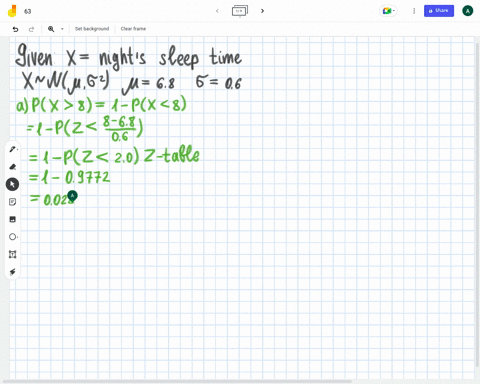 63
Set background
Clear frame
Share
A
Given X = night's sleep time
X~N(μ,σ²) μ = 6.8 σ = 0.6
a) P(X > 8) = 1-P(X < 8)
= 1-P(Z < 8-6.8/0.6)
= 1-P(Z < 2.0) Z-table
= 1 - 0.9772
A